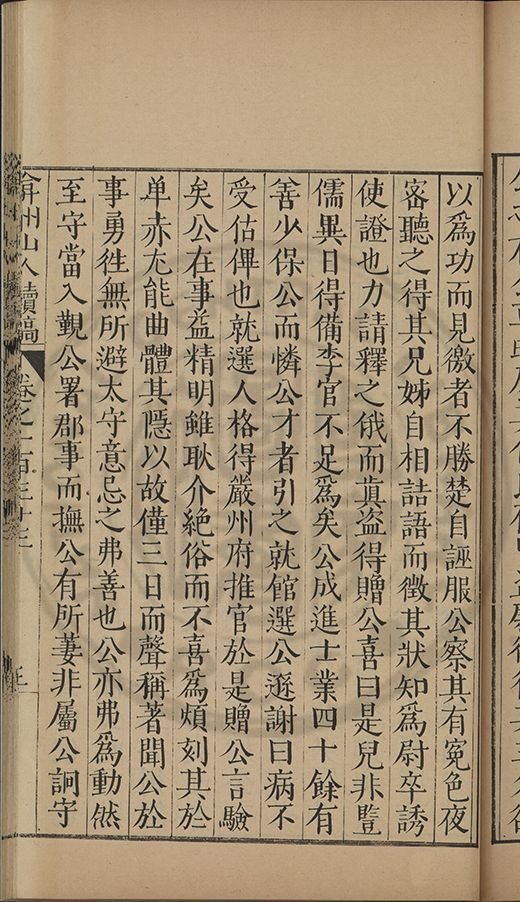 以爲功而見徼者不勝楚自誣服公察其有冤色夜
密聽之得其兄姊自相詰語而徵其狀知爲尉卒誘
使證也力請釋之俄而眞盗得贈公喜曰是兒非豎
儒異日得備李官不足爲矣公成進士業四十餘有
善少保公而憐公才者引之就館選公遜謝曰病不
受估俾也就選人格得嚴州府推官於是贈公言驗
矣公在事益精明雖耿介絶俗而不喜爲煩刻其於
单赤尤能曲體其隱以故僅三日而聲稱著聞公於
事勇徃無所避太守意忌之弗善也公亦弗爲動然
至守當入覲公署郡事而撫公有所萋非屬公詗守
弇州山人續稿 卷之一百三十三